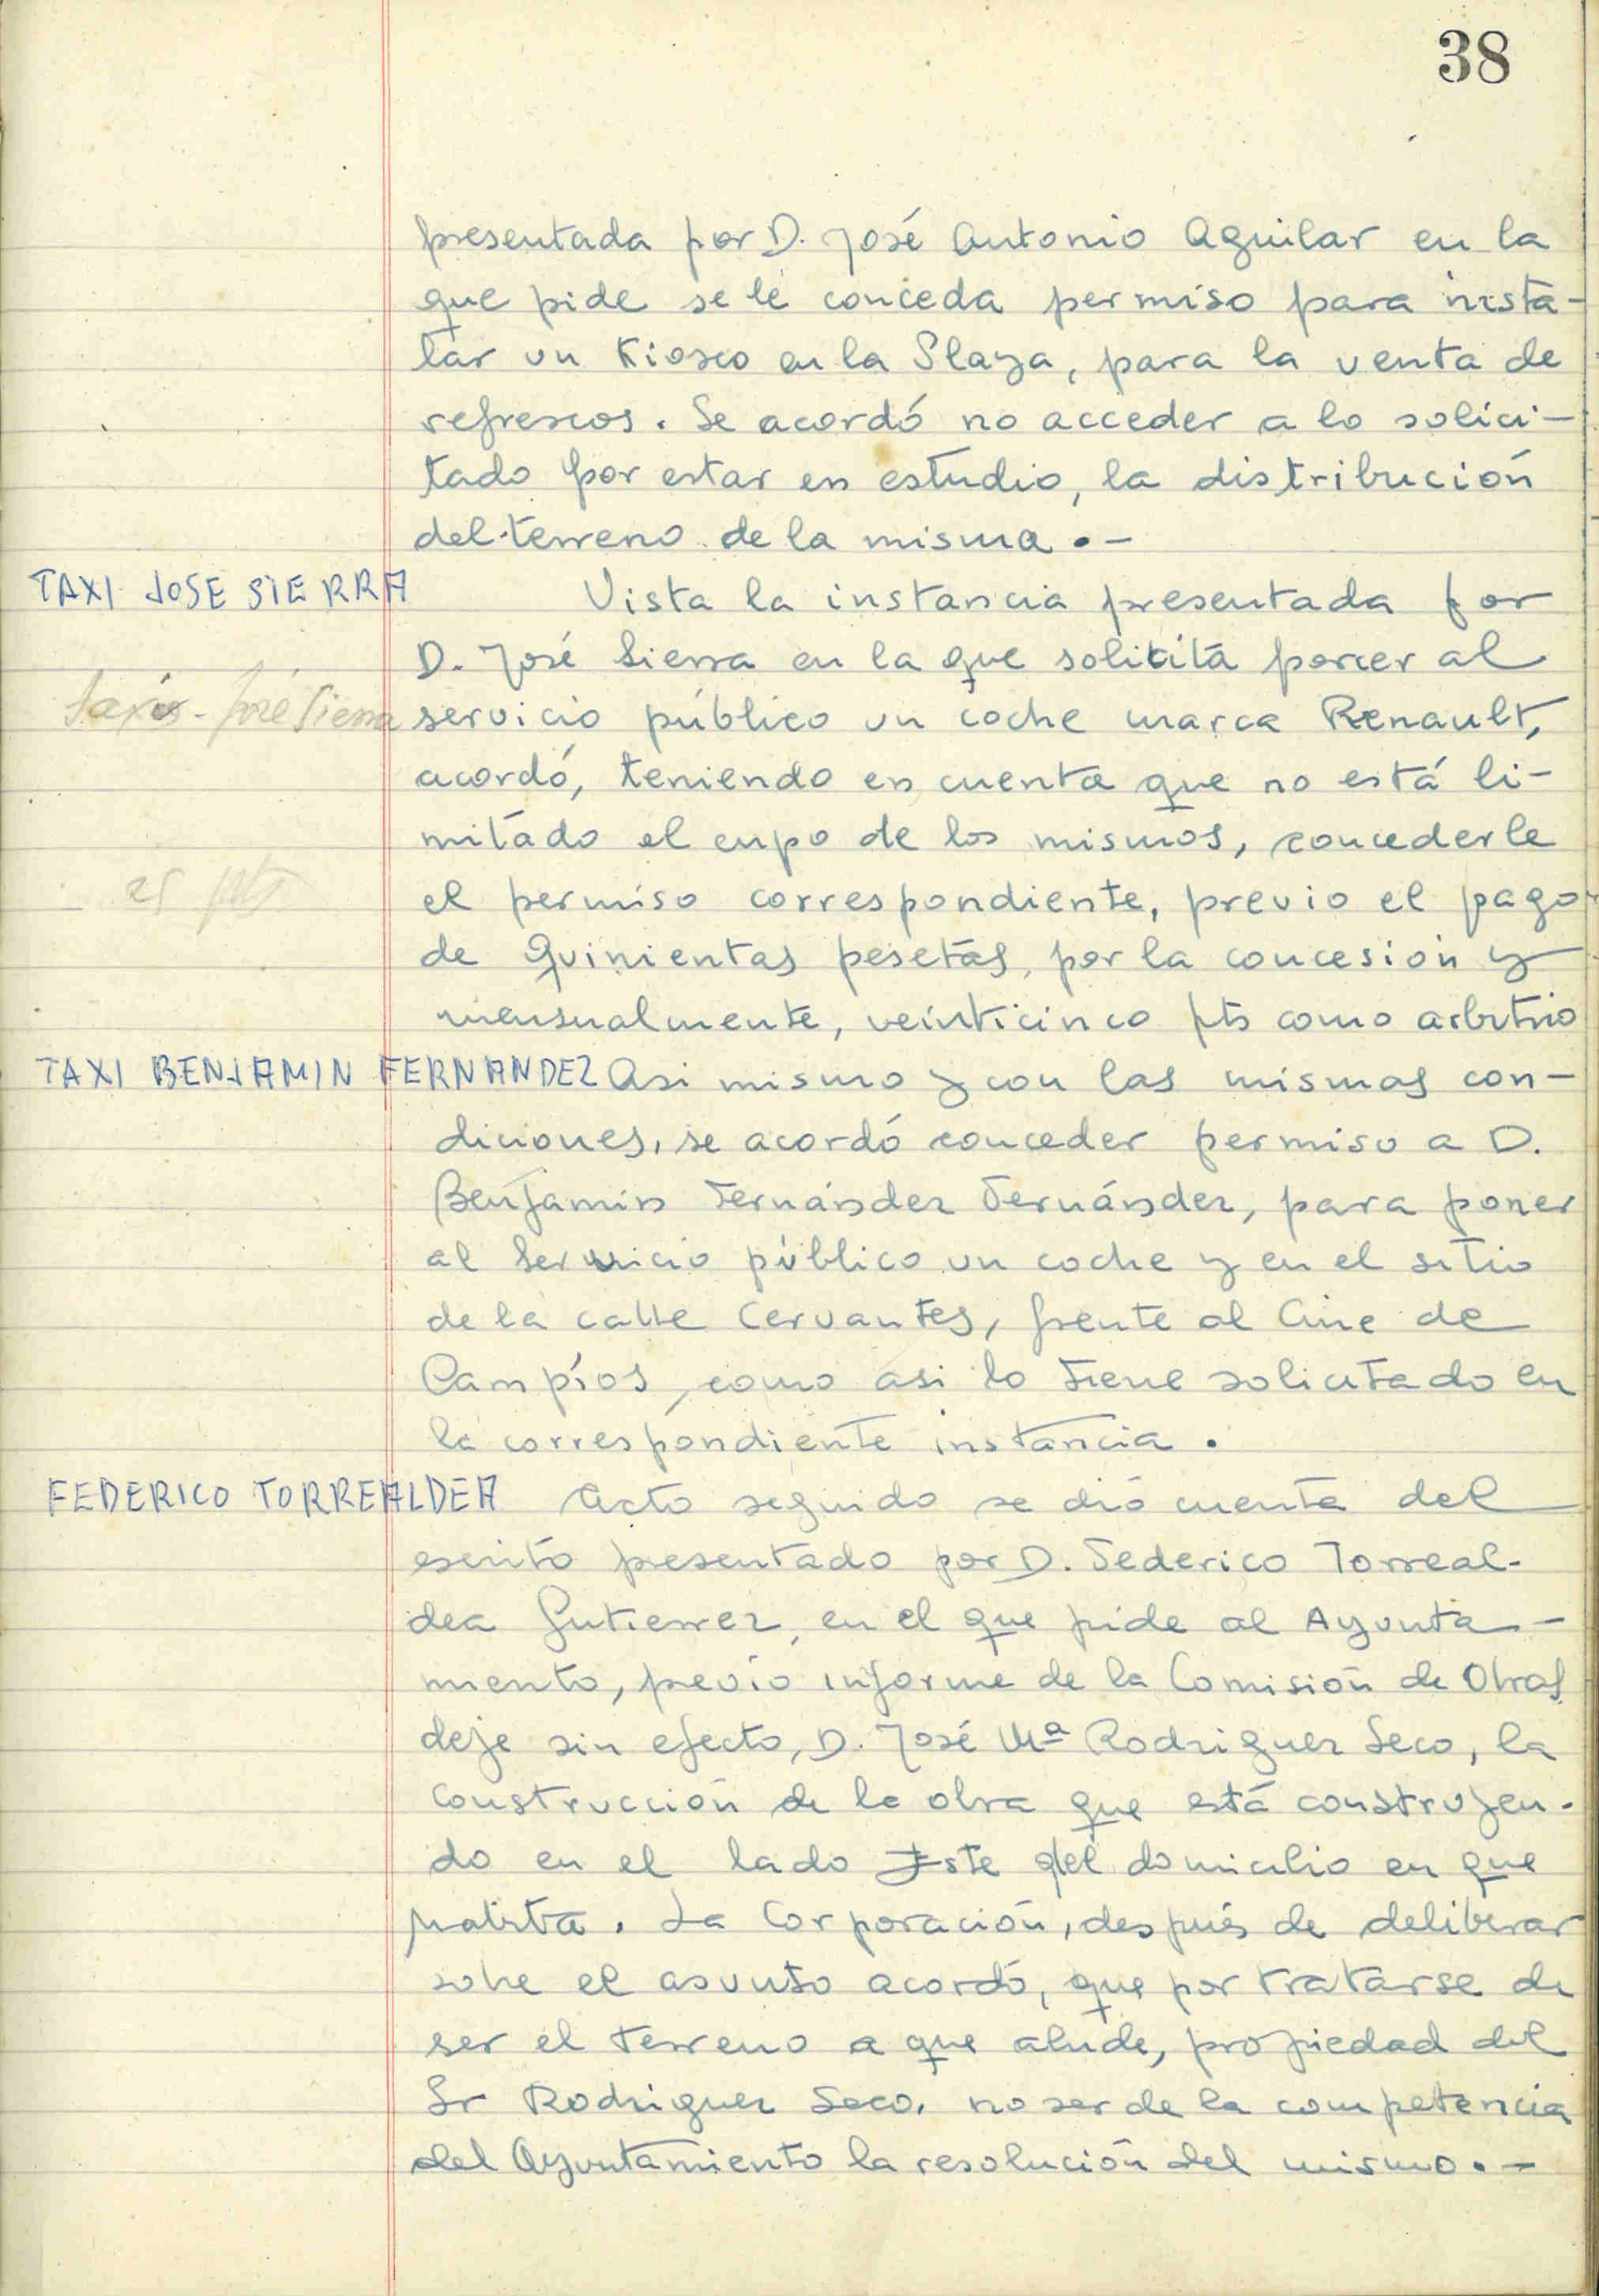 38
presentada por D. José Antonio Aguilar en la
que pide se le conceda permiso para insta-
lar un Kiosco en la Plaza, para la venta de
refrescos. Se acordó no acceder a lo solici-
tado por estar en estudio, la distribución
del terreno de la misma.-
TAXI JOSE SIERRA
Vista la instancia presentada por
D. José Sierra en la que solicita poner al
Taxis - José Sierra
servicio público un coche marca Renault,
acordó, teniendo en cuenta que no está li-
mitado el cupo de los mismos, concederle
25 pts
el permiso correspondiente, previo el pago
de Quinientas pesetas, por la concesión y
mensualmente, veinticinco pts como arbitrio
TAXI BENJAMIN FERNANDEZ Asi mismo y con las mismas con-
diciones, se acordó conceder permiso a D.
Benjamín Fernández Fernández, para poner
al Servicio público un coche y en el sitio
de la calle Cervantes, frente al Cine de
Campíos, como asi lo tiene solicitado en
la correspondiente instancia.
FEDERICO TORREALDEA Acto seguido se dió cuenta del
escrito presentado por D. Federico Torreal-
dea Gutierrez, en el que pide al Ayunta-
miento, previo informe de la Comisión de Obras
deje sin efecto, D. José Mª Rodriguez Seco, la
construcción de la obra que está construyen-
do en el lado Este del domicilio en que
habita. La Corporación, después de deliberar
sobre el asunto acordó, que por tratarse de
ser el terreno a que alude, propiedad del
Sr Rodriguez Seco, no ser de la competencia
del Ayuntamiento la resolución del mismo.-